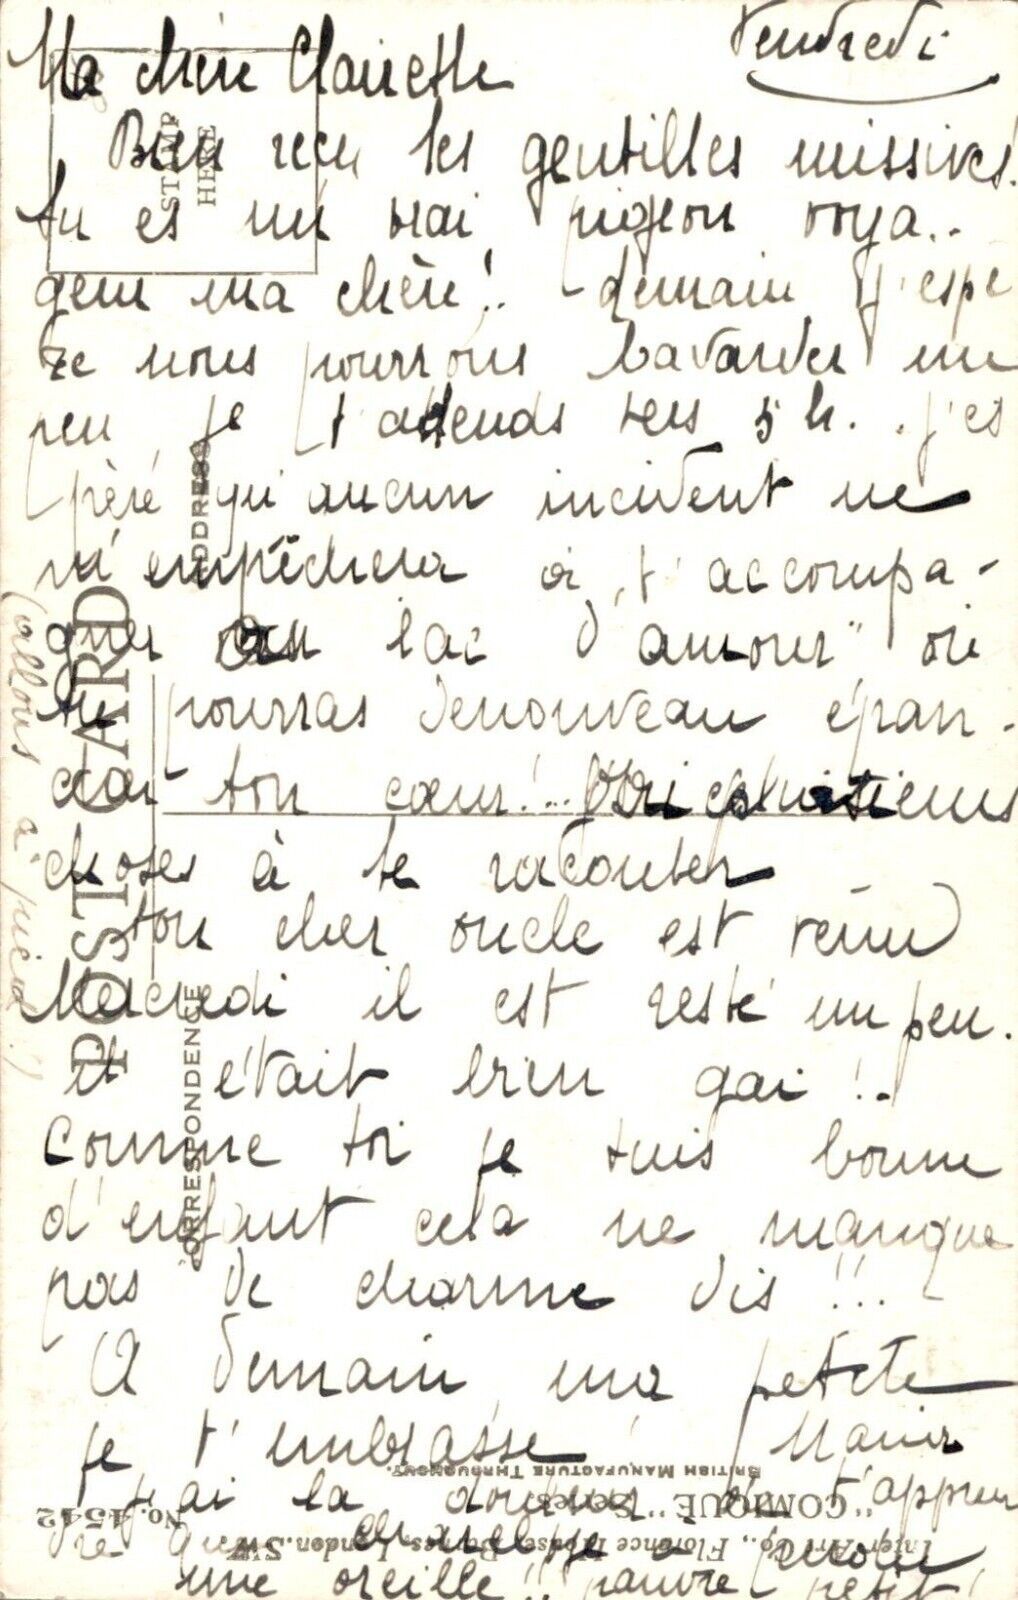 Vendredi
Ma chère Clairette
Bien reçu tes gentilles missives!
tu es un vrai pigeon voya..
geur ma chère!. demain j'espè
re nous pourrons bavarder un
peu je t'attends vers 5 h.. j'es
père qu'aucun incident ne
m'empêchera à t'accompa-
gner au lac d'amour" où
tu pourras denouveau épan-
cher ton cœur!... plusieurs
choses à te raconter
ton cher oncle est venu
Mercredi il est resté un peu.
il était bien gai!.
Comme toi je suis bonne
d'enfant cela ne manque
pas de charme dis!!..
A demain ma petite
je t'embrasse
j'ai la douleur d t'appren
dre que a perdu
une oreille!! pauvre petit!
(allons à pied!)
STAMP
HERE
POST CARD
ADDRESS
CORRESPONDENCE
BRITISH MANUFACTURE THROUGHOUT.
"COMIQUE" Series No. 4542
Inter-Art Co., Florence House, Barnes, London.SW